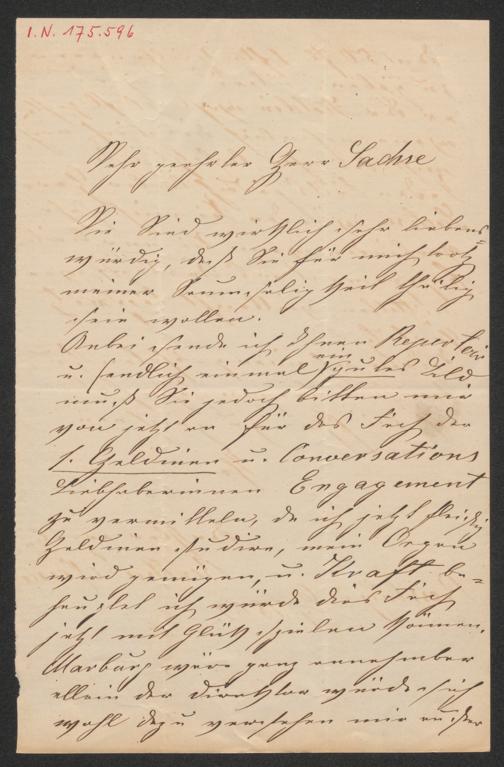 I.N. 175.596
Sehr geehrter Herr Sachse
Sie sind wirklich sehr liebens=
würdig, daß Sie für mich trotz
meiner Saumseligkeit thätig
sein wollen.
Anbei sende ich Ihnen Repertoir
u. (endlich einmal) ein gutes Bild
muß Sie jedoch bitten mir
von jetzt an für das Fach der
I. Heldinen u. Conversations
Liebhaberinnen Engagement
zu vermitteln, da ich jetzt fleißig
Heldinen studire, mein Organ
wird genügen, u. Kraft be=
hauptet ich würde dies Fach
jetzt mit Glück spielen können.
Marburg wäre ganz annehmbar
allein der Direktor würde sich
wohl dazu verstehen mir außer